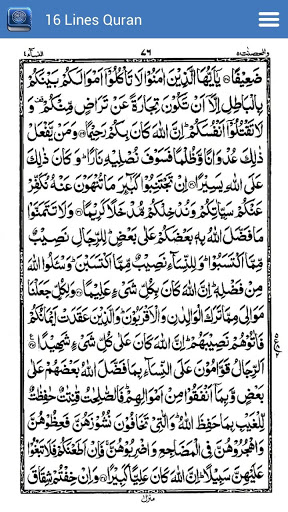 16 Lines Quran
والمحصنت٥ ٧٦ النسآء٤
ضَعِيْفًا۝ يٰۤاَيُّهَا الَّذِيْنَ اٰمَنُوْا لَا تَاْكُلُوْۤا اَمْوَالَكُمْ بَيْنَكُمْ
بِالْبَاطِلِ اِلَّاۤ اَنْ تَكُوْنَ تِجَارَةً عَنْ تَرَاضٍ مِّنْكُمْ وَ
لَا تَقْتُلُوْۤا اَنْفُسَكُمْ اِنَّ اللّٰهَ كَانَ بِكُمْ رَحِيْمًا۝ وَمَنْ يَّفْعَلْ
ذٰلِكَ عُدْوَانًا وَّظُلْمًا فَسَوْفَ نُصْلِيْهِ نَارًا وَ كَانَ ذٰلِكَ
عَلَى اللّٰهِ يَسِيْرًا۝ اِنْ تَجْتَنِبُوْا كَبَآئِرَ مَا تُنْهَوْنَ عَنْهُ نُكَفِّرْ
عَنْكُمْ سَيِّاٰتِكُمْ وَنُدْخِلْكُمْ مُّدْخَلًا كَرِيْمًا۝ وَلَا تَتَمَنَّوْا
مَا فَضَّلَ اللّٰهُ بِهٖ بَعْضَكُمْ عَلٰى بَعْضٍ لِلرِّجَالِ نَصِيْبٌ
مِّمَّا اكْتَسَبُوْا وَلِلنِّسَآءِ نَصِيْبٌ مِّمَّا اكْتَسَبْنَ وَسْـَٔلُوا اللّٰهَ
مِنْ فَضْلِهٖ اِنَّ اللّٰهَ كَانَ بِكُلِّ شَيْءٍ عَلِيْمًا۝ وَلِكُلٍّ جَعَلْنَا
مَوَالِيَ مِمَّا تَرَكَ الْوَالِدٰنِ وَالْاَقْرَبُوْنَ وَالَّذِيْنَ عَقَدَتْ اَيْمَانُكُمْ
فَاٰتُوْهُمْ نَصِيْبَهُمْ اِنَّ اللّٰهَ كَانَ عَلٰى كُلِّ شَيْءٍ شَهِيْدًا۝
اَلرِّجَالُ قَوّٰمُوْنَ عَلَى النِّسَآءِ بِمَا فَضَّلَ اللّٰهُ بَعْضَهُمْ عَلٰى
بَعْضٍ وَّبِمَاۤ اَنْفَقُوْا مِنْ اَمْوَالِهِمْ فَالصّٰلِحٰتُ قٰنِتٰتٌ حٰفِظٰتٌ
لِّلْغَيْبِ بِمَا حَفِظَ اللّٰهُ وَالّٰتِيْ تَخَافُوْنَ نُشُوْزَهُنَّ فَعِظُوْهُنَّ
وَاهْجُرُوْهُنَّ فِي الْمَضَاجِعِ وَاضْرِبُوْهُنَّ فَاِنْ اَطَعْنَكُمْ فَلَا تَبْغُوْا
عَلَيْهِنَّ سَبِيْلًا اِنَّ اللّٰهَ كَانَ عَلِيًّا كَبِيْرًا۝ وَاِنْ خِفْتُمْ شِقَاقَ
منزل١